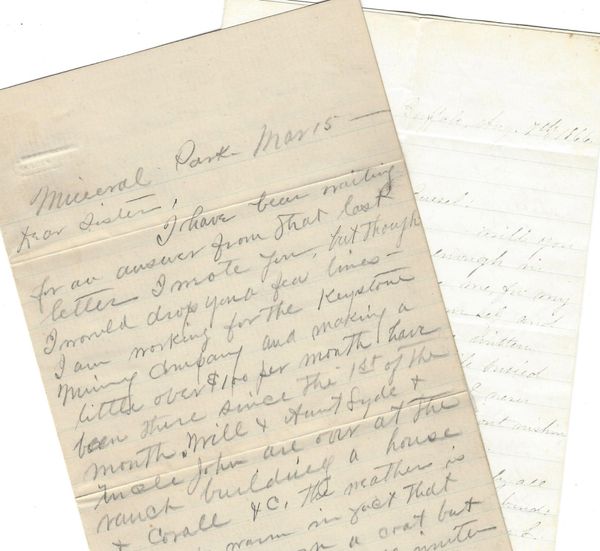 Mineral Park Mar 15 —
Dear Sister,
I have bean waiting
for an answer from that last
letter I wrote you, but though
I would drop you a few lines —
I am working for the Keystone
Mining Company and making a
little over $100 per month I have
been there since the 1st of the
month. Will & Aunt &
Uncle John are over at the
ranch building a house
& Corall &C. The weather is
warm in fact that
on a coat but
Buffalo, Aug. 7th 1866
will you
enough in
for my
and
written
buried
a new
all